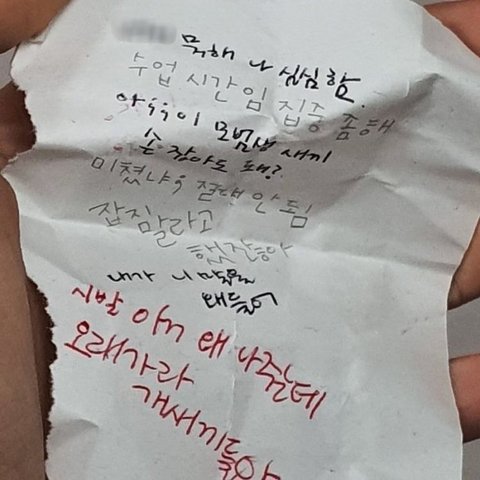 뭐해 나 심심함.
수업 시간임 집중 좀해
아휴 이 모범생 새끼
손 잡아도 돼?
미쳤냐 절대 안 됨
잡지말라고
했잖아
내가 니 마음을
왜들어
시발 아니 왜 나 주는데
오래가라
개새끼들아